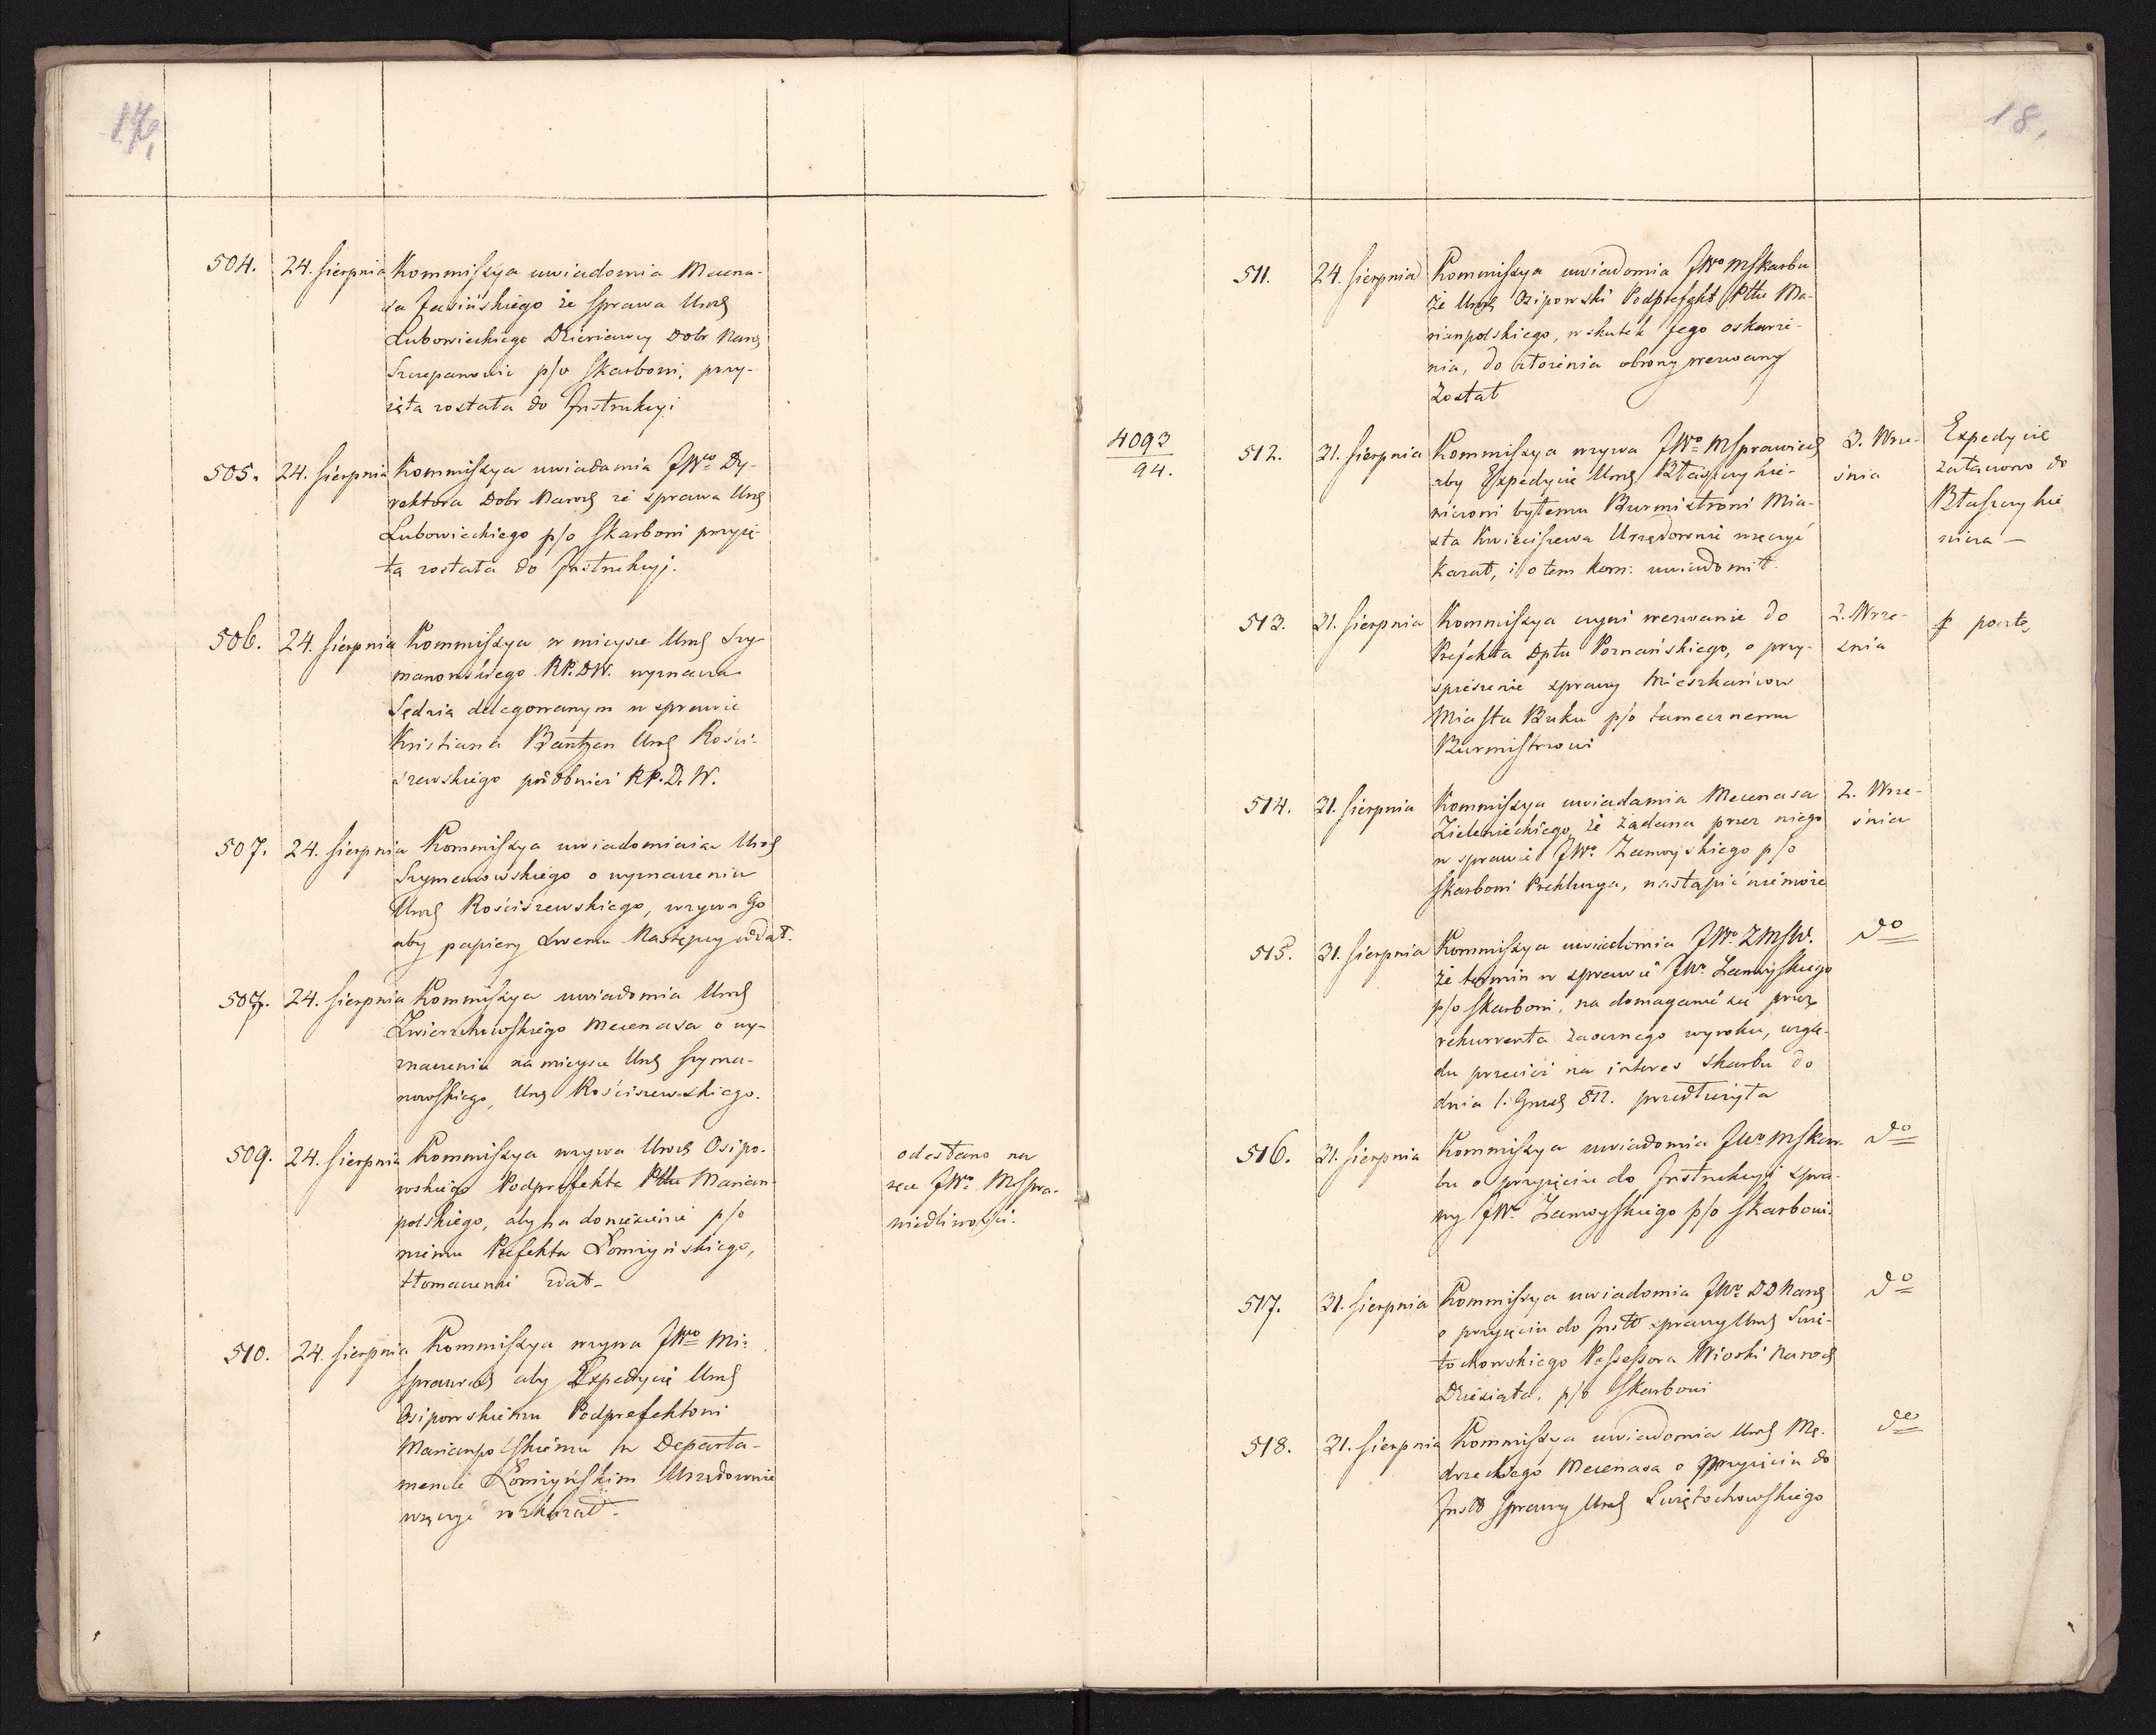 17,
504. 24. Sierpnia Kommissya uwiadomia Mecena-
sa Jasińskiego że sprawa Urodz
Lubowieckiego Dzierżawcy Dobr Narodz
Szczepanowic p/o Skarbowi, przy-
ięta została do Instrukcyi
505. 24. Sierpnia Kommissya uwiadamia JWo Dy-
rektora Dobr Narod że sprawa Urodz
Lubowieckiego p/o Skarbowi przyię-
tą została do Instrukcyj.
506. 24. Sierpnia Kommissya w mieysce Urodz Szy-
manowskiego RP.DW. wyznacza
Sędzią delegowanym w sprawie
Kristiana Bantzen Urodz Rości-
szewskiego RP. D. W.
507. 24. Sierpnia Kommissya uwiadomiaiąc Urodz
Szymanowskiego o wyznaczeniu
Urodz Rościszewskiego, wzywa Go
aby papiery swemu Następcy oddał.
507. 24. Sierpnia Kommissya uwiadomia Urodz
Zwierzchowskiego Mecenasa o wy-
znaczeniu na mieysce Urodz Szyma-
nowskiego, Urodz Rościszewskiego.
509. 24. Sierpnia Kommissya wzywa Urodz Osipo-
wskiego Podprefekta Pttu Marian-
polskiego, aby na doniesienie p/o
niemu Prefekta Łomżyńskiego,
tłomaczenie zdał_
odesłano na
ręce JWo MSpra-
wiedliwości.
510. 24. Sierpnia Kommissya wzywa JWo Mi-
Sprawiedl aby Expedycie Urodz
Osipowskiemu Podprefektowi
Marianpolskiemu w Departa-
mencie Łomżyńskim Urzędownie
wręczyć rozkazał.
18.
511. 24. Sierpnia Kommissya uwiadomia JWo MSkarbu
że Urodz Osipowski Podprefekt Pttu Ma-
rianpolskiego, w skutek Jego oskarże-
nia, do złożenia obrony wezwany
został
4093
94.
512. 31. Sierpnia Kommissya wzywa JWo MSprawiedl
aby Expedycie Urodz Błaszczykie-
wiczowi byłemu Burmistrowi Mia-
sta Kwieciszewa Urzędownie wręczyć
kazał, i o tem Kom: uwiadomił.
3. Wrze-
śnia
Expedycie
załączono do
Błaszczykie
wicza —
513. 31. Sierpnia Kommissya czyni wezwanie do
Prefekta Dptu Poznańskiego, o przy-
spieszenie sprawy Mieszkańcow
Miasta Buku p/o tamecznemu
Burmistrzowi
2. Wrze-
śnia
p pocztę
514. 31. Sierpnia Kommissya uwiadamia Mecenasa
Zieleniechiego, że żądana przez niego
w sprawie JWo Zamoyskiego p/o
Skarbowi Prekluzya, nastąpić niemoże
2. Wrze-
śnia
515. 31. Sierpnia Kommissya uwiadomia JWo ZMSW.
że termin w sprawie JWo Zamoyskiego
p/o Skarbowi, na domaganie się przez
rekurrenta zaocznego wyroku, wzglę-
du przecież na interes Skarbu do
dnia 1. Grudz 812. przedłużyła
do
516. 31. Sierpnia Kommissya uwiadomia JWo MSkar-
bu o przyięciu do Instrukcyi spra-
wy JWo Zamoyskiego p/o Skarbowi.
do
517. 31. Sierpnia Kommissya uwiadomia JWo DD Narodz
o przyięciu do Instr sprawy Urodz Swię-
tochowskiego Possessora Wioski Narodz
Dziesiąta, p/o Skarbowi
do
518. 31. Sierpnia Kommissya uwiadomia Urodz Mę-
drzeckiego Mecenasa o przyięciu do
Instr Sprawy Urodz Swiętochowskiego
do